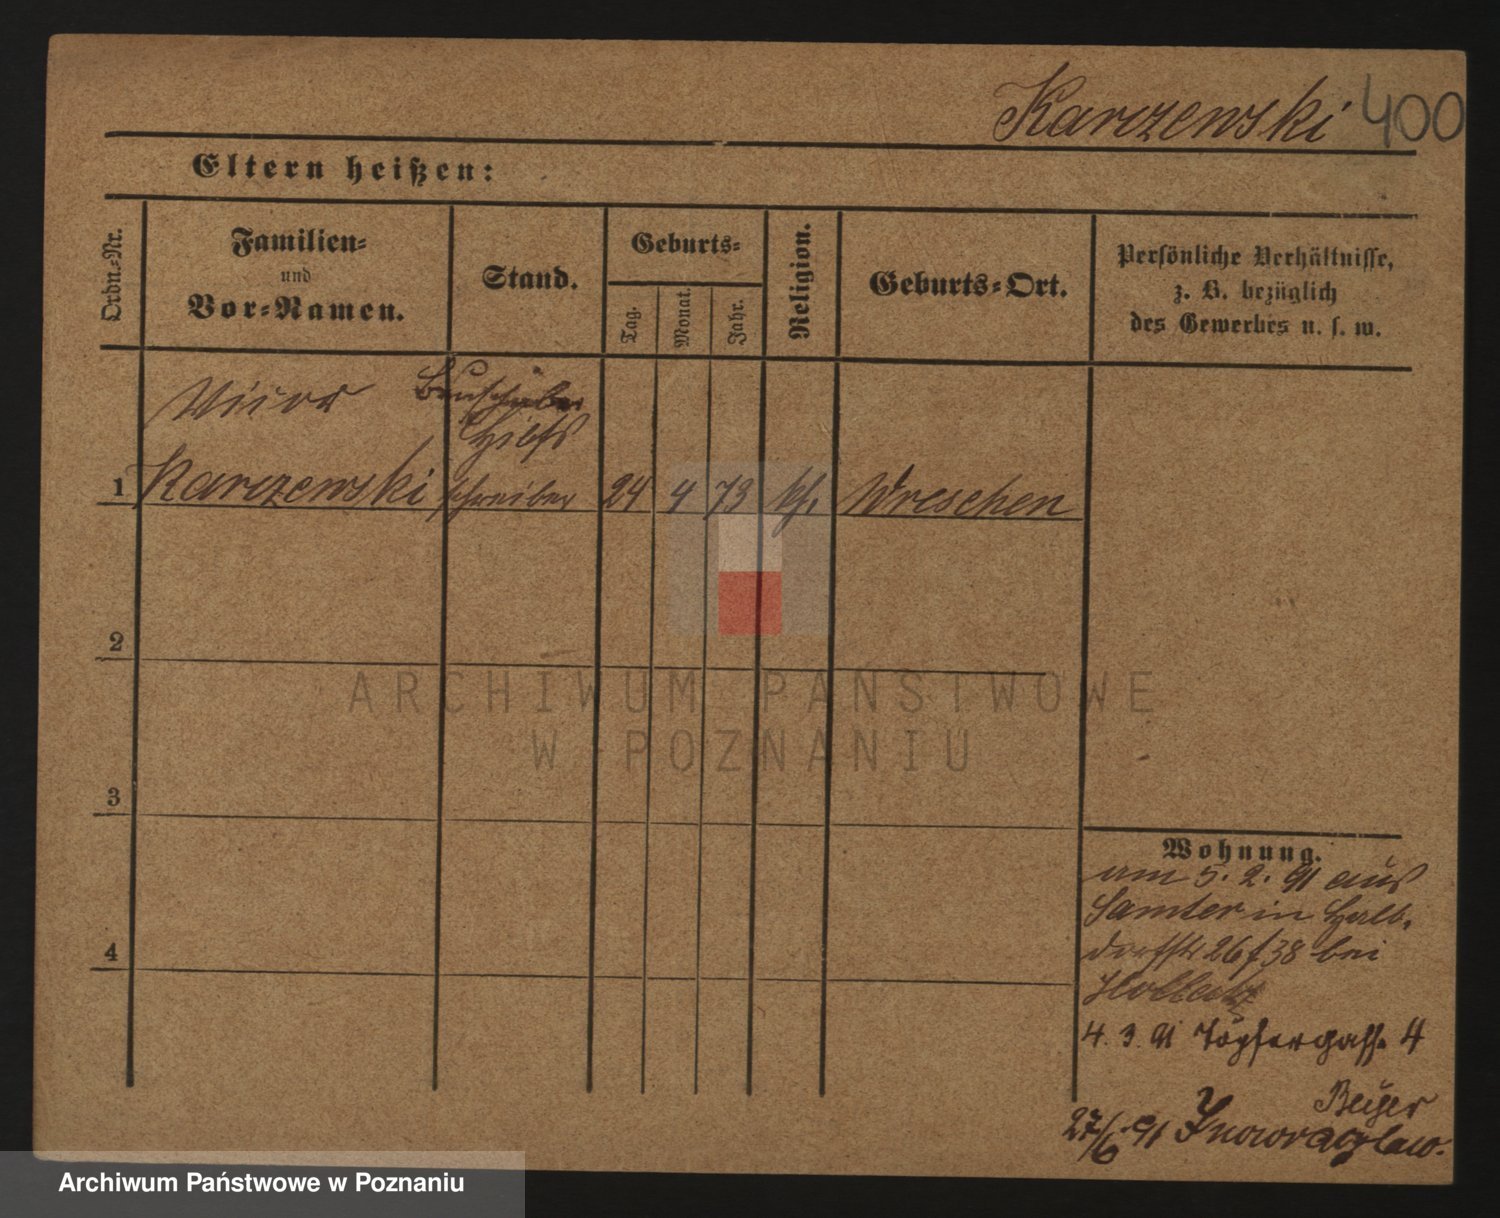 Karczewski 400
Eltern heißen:
Ordn.-Nr.
Familien-
und
Vor-Namen.
Stand.
Geburts-
Tag.
Monat.
Jahr.
Religion.
Geburts-Ort.
Persönliche Verhältnisse,
z. B. bezüglich
des Gewerbes u. s. w.
Hilfs
1 Karczewski schreiber 24 4 73 kth. Wreschen
2
3
4
Wohnung.
am 5. 2. 91 aus
Samter in Halb-
dorfstr 26/38 bei
4. 3. 91 Töpfergasse 4
Beyer
27/6. 91 Inowrazlaw.
ARCHIWUM PAŃSTWOWE
W POZNANIU
Archiwum Państwowe w Poznaniu